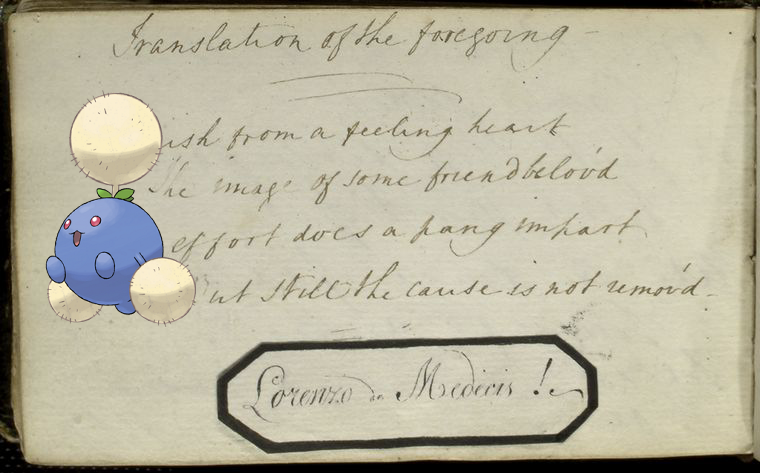 Translation of the foregoing
ish from a feeling heart
he image of some friend belov'd
effort does a pang impart
ut still the cause is not remov'd
Lorenzo de Medicis!